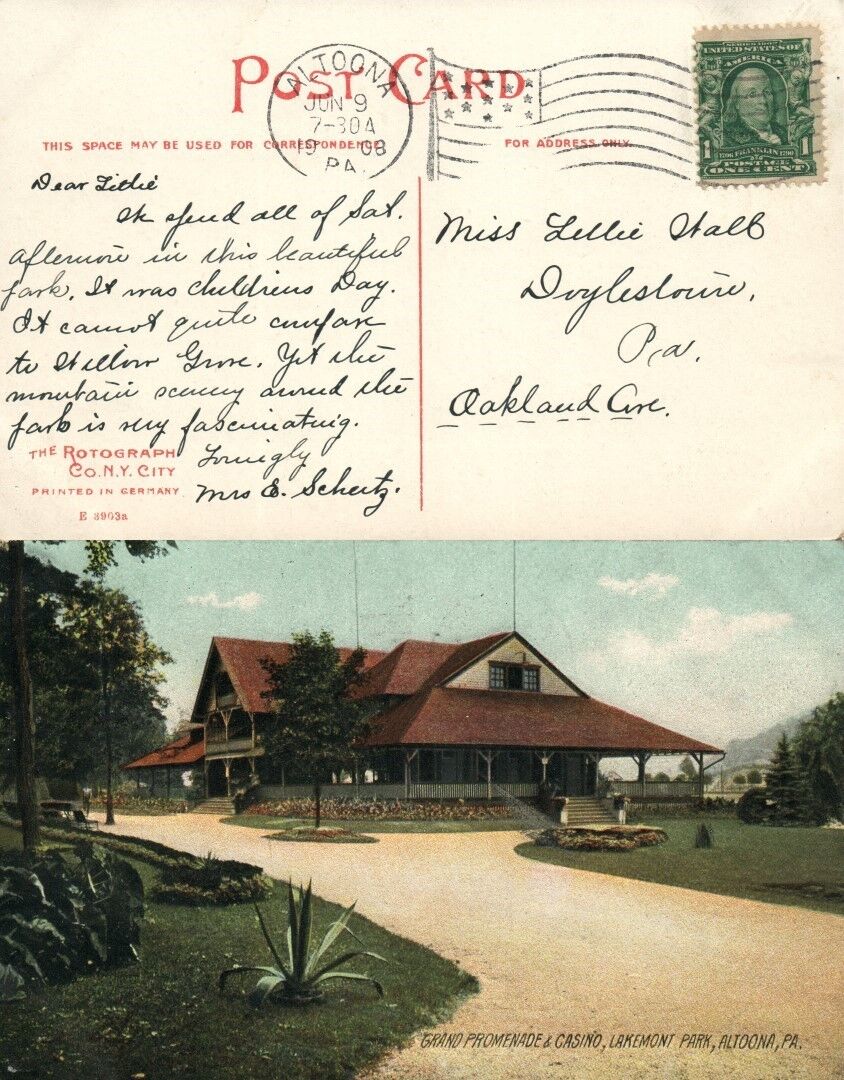 POST CARD
ALTOONA
JUN 9
7-30A
1908
PA.
SERIES 1902
UNITED STATES OF
AMERICA
1706 FRANKLIN 1790
1 POSTAGE 1
ONE CENT
THIS SPACE MAY BE USED FOR CORRESPONDENCE
FOR ADDRESS ONLY.
Dear Lillie
We spend all of Sat.
afternoon in this beautiful
park. It was childrens Day.
It cannot quite compare
to Willow Grove. Yet the
mountain scenery around the
park is very fascinating.
Lovingly
Mrs E. Scheetz.
Miss Lillie
Doylestown,
Pa.
Oakland Ave.
THE ROTOGRAPH
CO. N.Y. CITY
PRINTED IN GERMANY
E 3903a
GRAND PROMENADE & CASINO, LAKEMONT PARK, ALTOONA, PA.